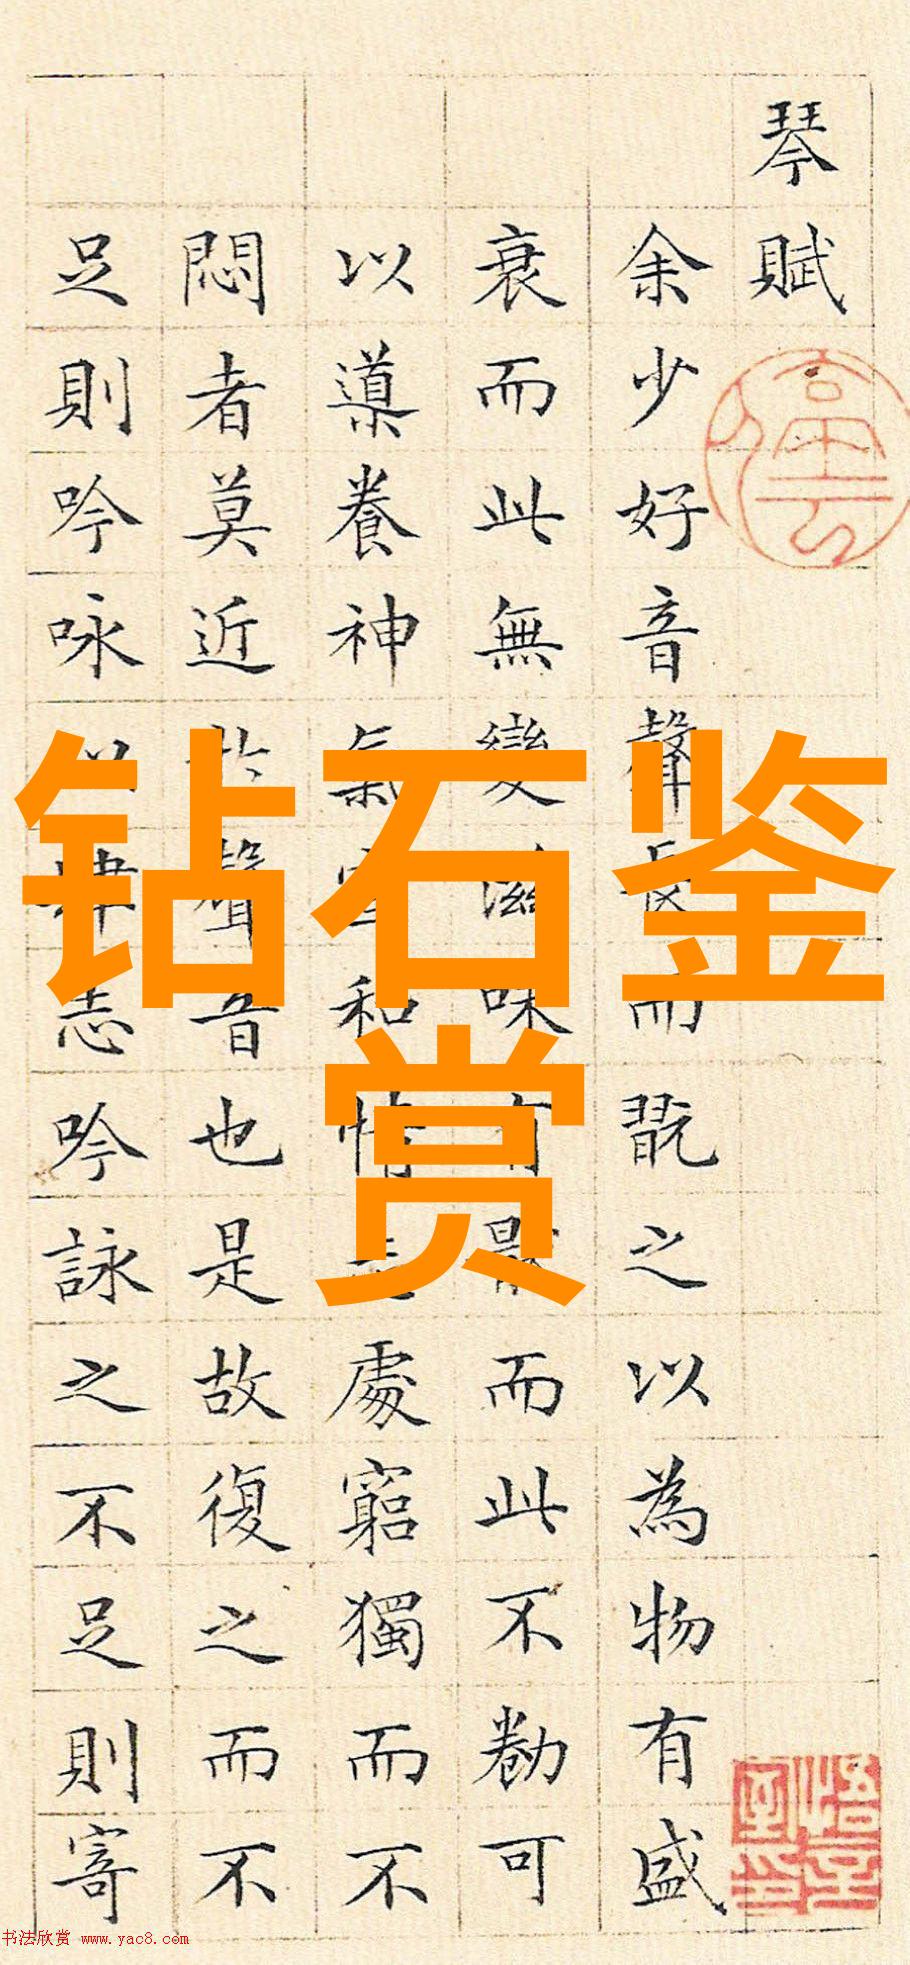 琴賦
余少好音聲長而翫之以為物有盛
衰而此無變滋味有厭而此不勌可
以導養神氣宣和情處窮獨而不
悶者莫近於聲音也是故復之而不
足則吟咏以肆志吟詠之不足則寄
钻石鉴
赏
悟言室印
书法欣赏 www.yac8.com